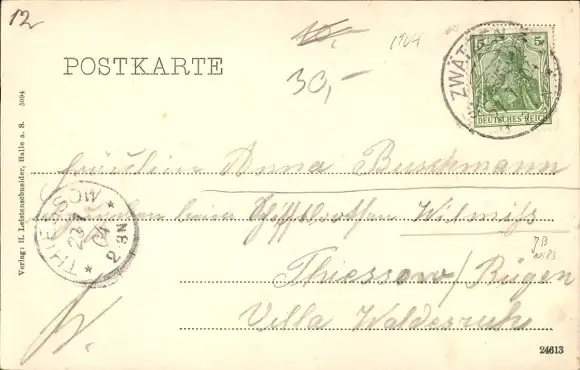 12
10,-
1904
POSTKARTE
30,-
ZWÄTZEN
5 5
DEUTSCHES REICH
Verlag: H. Leistenschneider, Halle a. S. 5094
Fräulein Anna Buschmann
THIESSOW
23 7 04
2-3N
beim Schiffslootsen Wilmiß
Thiessow/Rügen
Villa Waldesruh
24613